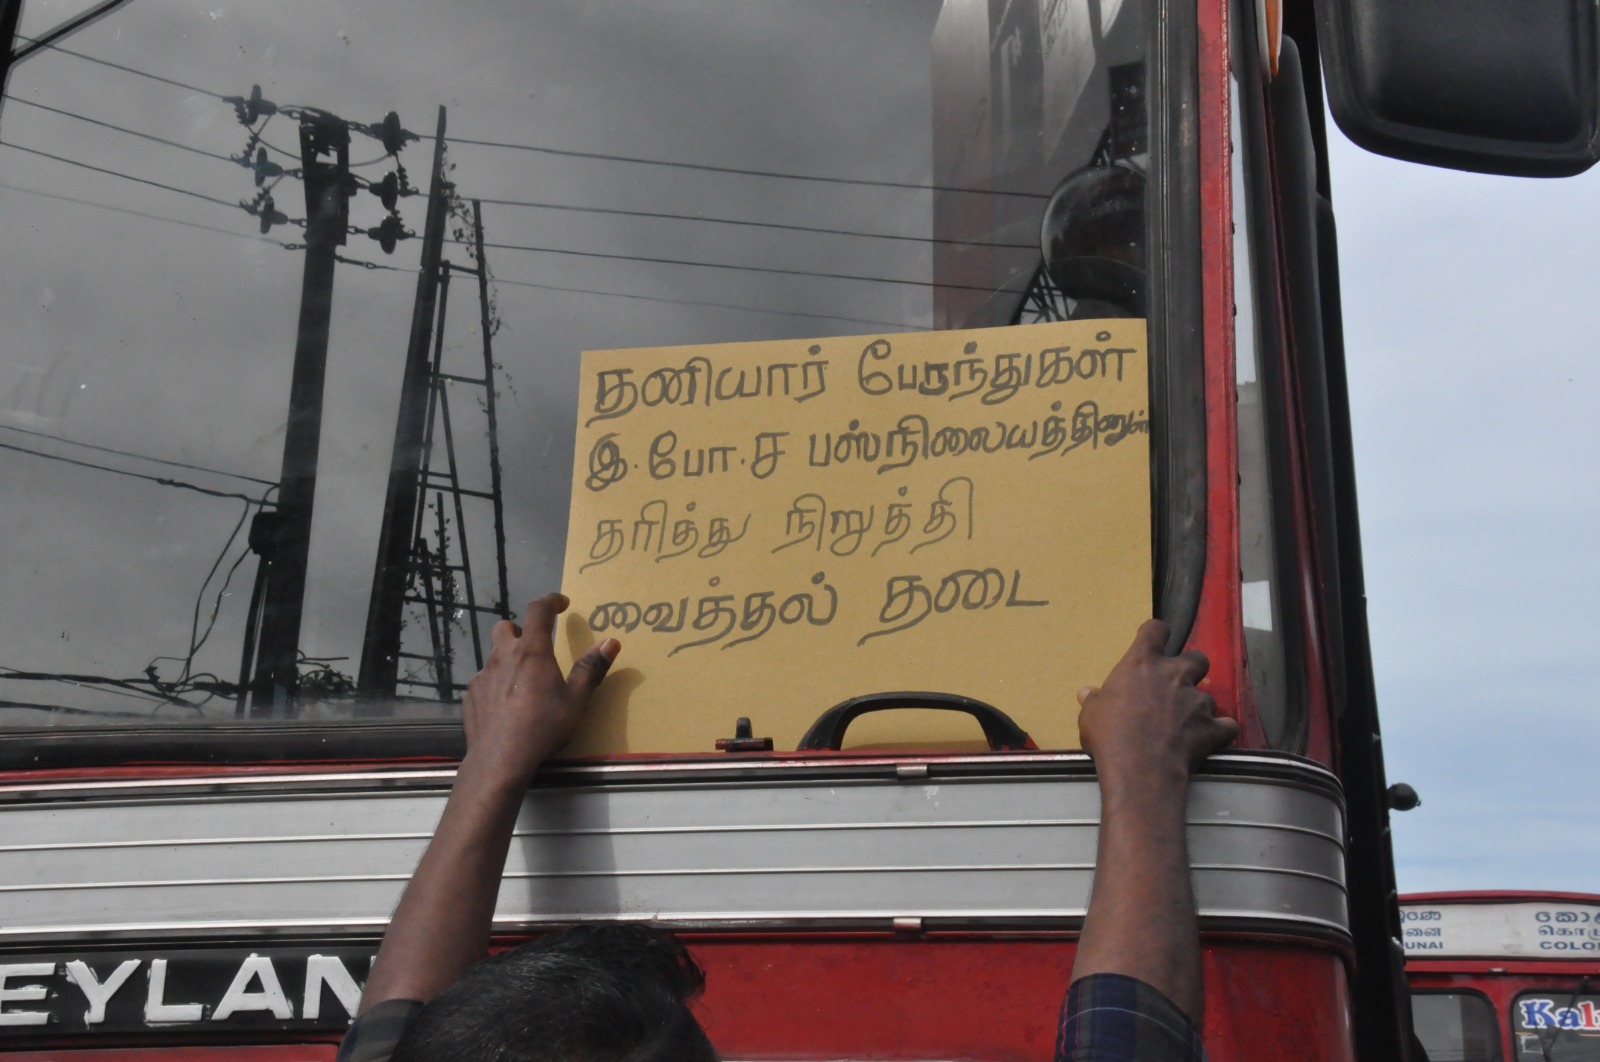 தனியார் பேருந்துகள்
இ.போ.ச பஸ்நிலையத்தினுள்
தரித்து நிறுத்தி
வைத்தல் தடை
EYLAN
UNAI
කො
கொழு
COLO
Kal